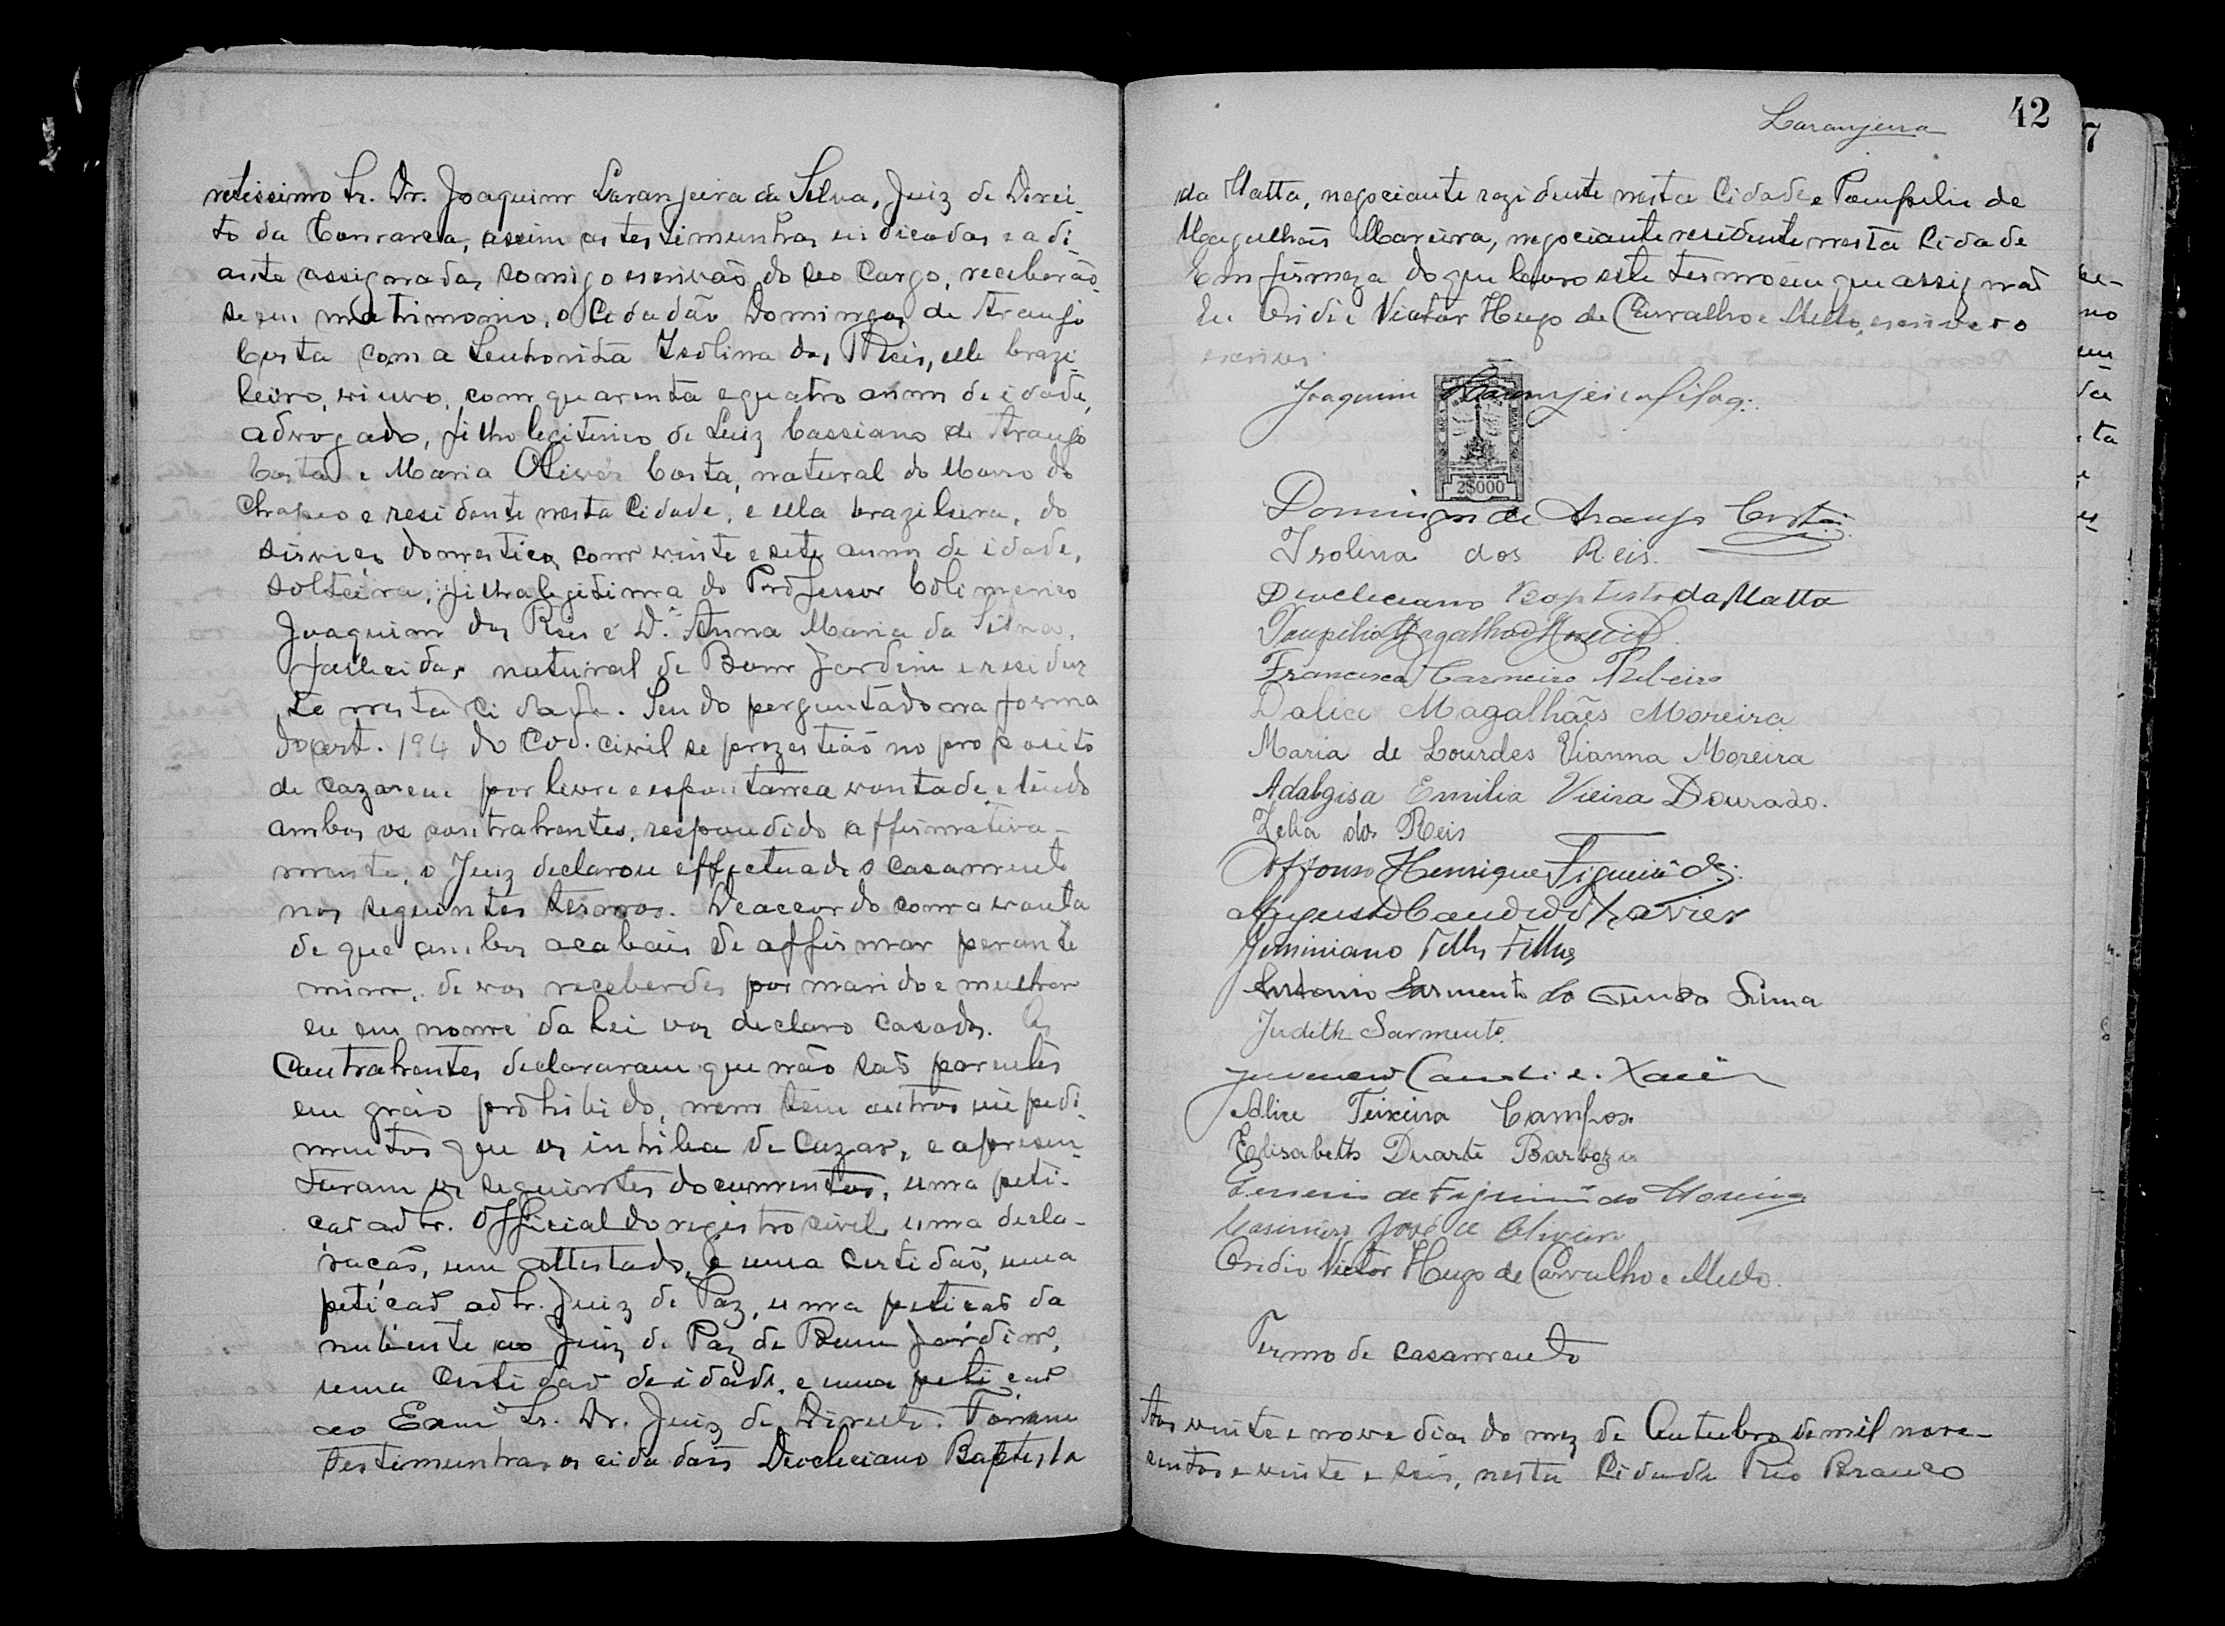 retissimo Sr. Dr. Joaquim Laranjeira da Silva, Juiz de Direi-
to da Comarca, assim as testimunhas indicadas e adi-
ante assignadas, comigo escrivão do seo cargo, receberão
se em matrimonio, o Cidadão Domingos de Araujo
Costa com a Senhorita Isolina dos Reis, elle brazi-
leiro, viuvo, com quarenta e quatro annos de idade,
advogado, filho legitimo de Luiz Cassiano de Araujo
Costa e Maria Costa, natural do Morro do
Chapeo e residente nesta Cidade, e ella brazileira, do
serviço domestico, com vinte e sete annos de idade,
solteira, filha legitima do Professor
Joaquim dos Reis e D. Anna Maria da Silva,
fallecidos, natural de Bom Jardim e residen
te nesta cidade. Sendo perguntado na forma
do art. 194 do Cod. civil se no proposito
de cazarem por livre e espontanea vontade, e tendo
ambos os contrahentes, respondido affirmativa-
mente, o Juiz declarou effectuado o casamento
nos seguintes termos. De accordo com a vonta
de que ambos acabais de affirmar perante
mim, de vos receberdes por marido e mulher
eu em nome da lei vos declaro casados. Os
Contrahentes declararam que não são parentes
em gráo prohibido, nem tem outros impedi-
mentos que os iniba de cazar, e apresen-
taram os seguintes documentos, uma peti-
cão ao Sr. Official do registro civil, uma decla-
ração, um attestado, e uma certidão, uma
petição ao Sr. Juiz de Paz, uma petição da
nubente ao Juiz de Paz de Bom Jardim,
uma Certidão de idade, e uma petição
ao Exmº Sr. Dr. Juiz de Direito. Foram
testimunhas os cidadãos Deocleciano Baptista
42
Laranjeira
da Matta, negociante rezidente nesta Cidade e Pompilio de
Magalhães Moreira, negociante residente nesta Cidade
Em firmeza do que lavro este termo em que assignão
Eu Ovidio Victor Hugo de Carvalho e Mello, escrivão o
escrevi.
Joaquim Laranjeira da Silva
2$000
Domingos de Araujo Costa
Isolina dos Reis.
Deocleciano Baptista da Matta
Pompilio Magalhães Moreira
Francisca Carneiro Ribeiro
Dalia Magalhães Moreira
Maria de Lourdes Vianna Moreira
Adalgisa Emilia Vieira Dourado.
Zelia dos Reis
Affonso Henrique Figueirêdo.
Augusto Candido Xavier
Filho
Antonio Sarmento da Lima
Judith Sarmento.
Xavier
Alice Teixeira Campos
Elisabeth Duarte Barboza
de Figueirêdo Moreira
Casimiro José de Oliveira
Ovidio Victor Hugo de Carvalho e Mello.
Termo de casamento
Aos vinte e nove dias do mez de Outubro de mil nove-
centos e vinte e seis, nesta Cidade Rio Branco
7